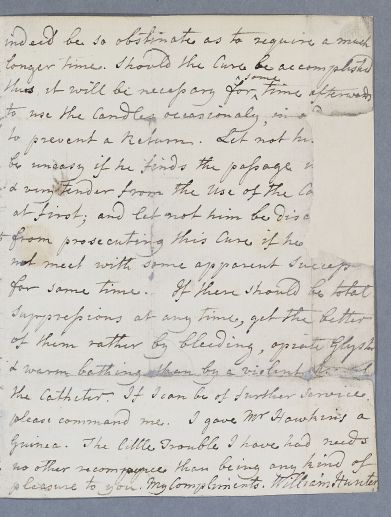 indeed be so obstinate as to require a much
longer time. Should the Cure be accomplished
thus it will be necessary for some time afterwards
to use the Candles occasionaly, in o
to prevent a Return. Let not hi
be uneasy if he finds the passage
& very tender from the Use of the Ca
at first; and let not him be disc
from prosecuting this Cure if he
not meet with some apparent Success
for some time. If there should be total
Suppressions at any time, get the better
of them rather by bleeding, opiate Glyster
& warm bathing than by a violent
the Catheter. If I can be of further Service,
please command me. I gave Mr Hawkins a
Guinea. The little Trouble I have had needs
no other recompence than being any kind of
pleasure to you. My Compliments. William Hunter